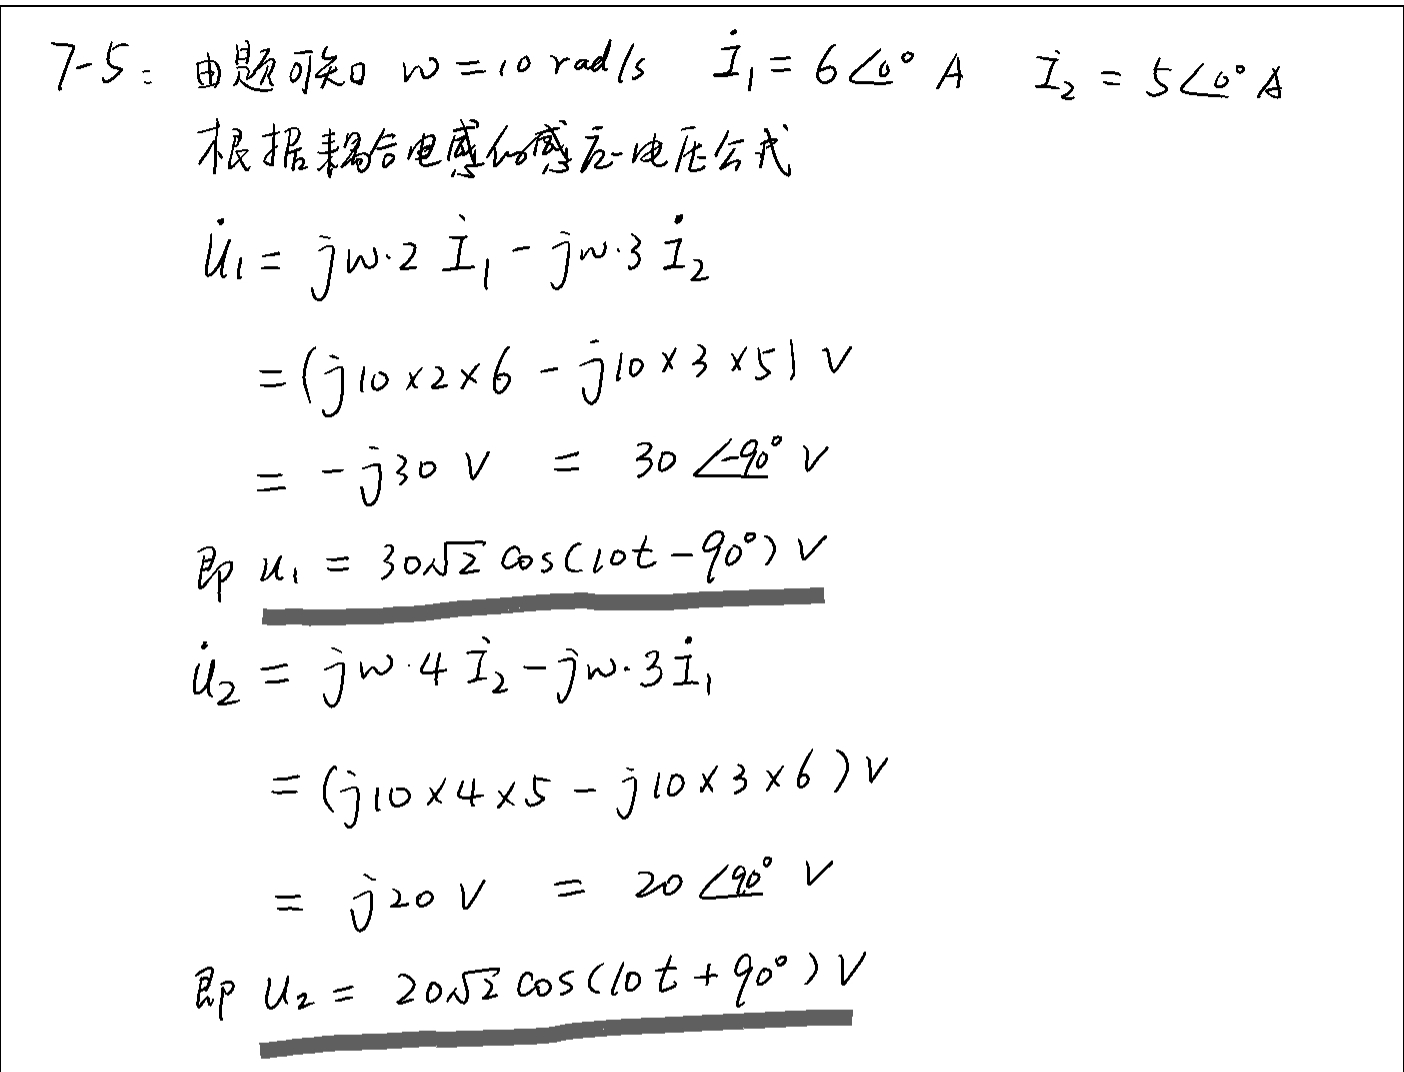 7-5: 由题可知 w = 10 rad/s İ₁ = 6∠0° A İ₂ = 5∠0° A
根据耦合电感的感应电压公式
U̇₁ = jw·2 İ₁ - jw·3 İ₂
= (j10 × 2 × 6 - j10 × 3 × 5) V
= -j30 V = 30∠-90° V
即 u₁ = 30√2 cos(10t - 90°) V
U̇₂ = jw·4 İ₂ - jw·3 İ₁
= (j10 × 4 × 5 - j10 × 3 × 6) V
= j20 V = 20∠90° V
即 u₂ = 20√2 cos(10t + 90°) V